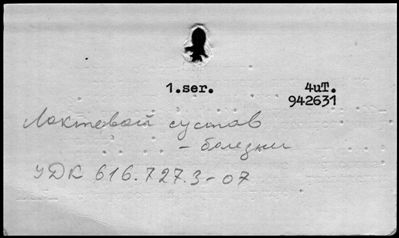 1.ser. 4uT.
942631
Локтевой сустав
- болезни
УДК 616.727.3-07